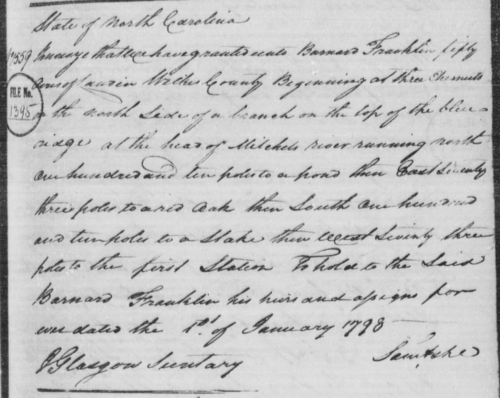 State of North Carolina
1559 Know ye that we have granted unto Barnard Franklin fifty
FILE No. 1395
acres of land in Wilkes County Beginning at three Chesnuts
on the north side of a branch on the top of the blue
ridge at the head of Mitchels river running north
one hundred and ten poles to a pond then East Seventy
three poles to a red oak then South one hundred
and ten poles to a Stake then West Seventy three
poles to the first Station To hold to the Said
Barnard Franklin his heirs and assigns for
ever dated the 1st of January 1798
J Glasgow Secretary Sam Ashe